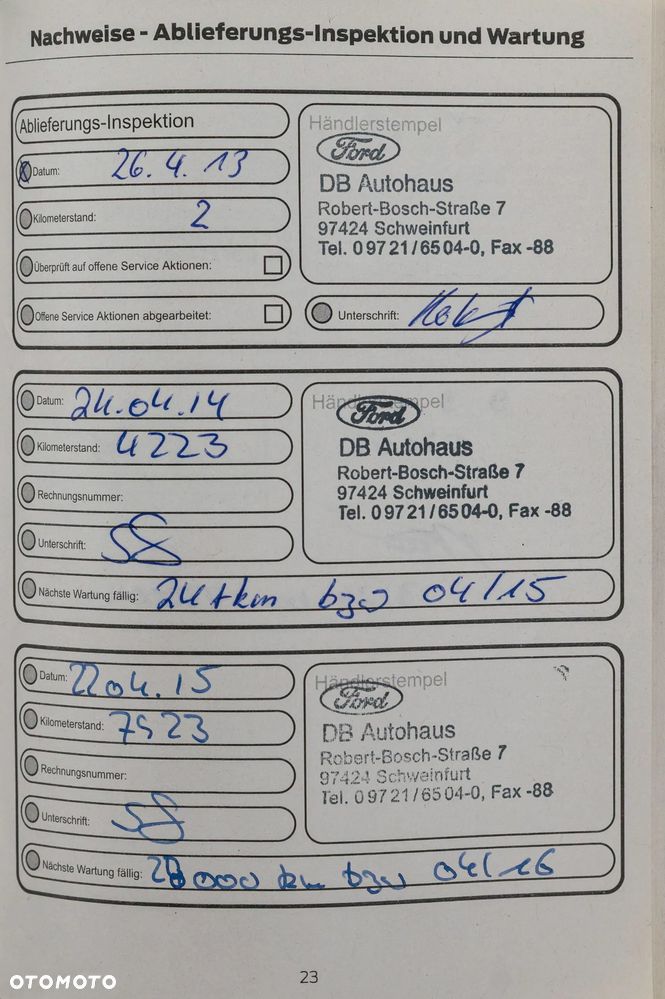 Nachweise - Ablieferungs-Inspektion und Wartung
Ablieferungs-Inspektion
Datum: 26.4.13
Kilometerstand: 2
Überprüft auf offene Service Aktionen:
Offene Service Aktionen abgearbeitet:
Händlerstempel
Ford
DB Autohaus
Robert-Bosch-Straße 7
97424 Schweinfurt
Tel. 09721/6504-0, Fax -88
Unterschrift:
Datum: 24.04.14
Kilometerstand: 4223
Rechnungsnummer:
Unterschrift:
Händlerstempel
Ford
DB Autohaus
Robert-Bosch-Straße 7
97424 Schweinfurt
Tel. 09721/6504-0, Fax -88
Nächste Wartung fällig: 24tkm bzw 04/15
Datum: 2204.15
Kilometerstand: 7523
Rechnungsnummer:
Unterschrift:
Händlerstempel
Ford
DB Autohaus
Robert-Bosch-Straße 7
97424 Schweinfurt
Tel. 09721/6504-0, Fax -88
Nächste Wartung fällig: km bzw 04/16
23
OTOMOTO